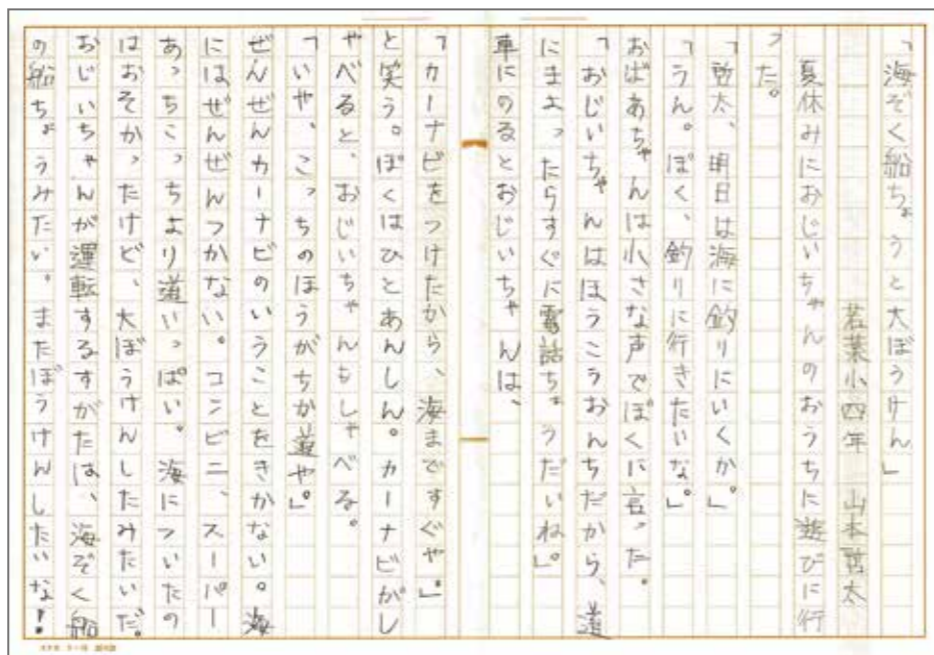 「海ぞく船ちょうと大ぼうけん」
若葉小四年 山本啓太
夏休みにおじいちゃんのおうちに遊びに行
った。
「啓太、明日は海に釣りにいくか。」
「うん。ぼく、釣りに行きたいな。」
おばあちゃんは小さな声でぼくに言った。
「おじいちゃんはほうこうおんちだから、道
にまよったらすぐに電話ちょうだいね。」
車にのるとおじいちゃんは、
「カーナビをつけたから、海まですぐや。」
と笑う。ぼくはひとあんしん。カーナビがし
ゃべると、おじいちゃんもしゃべる。
「いや、こっちのほうがちか道や。」
ぜんぜんカーナビのいうことをきかない。海
にはぜんぜんつかない。コンビニ、スーパー
あっちこっちより道いっぱい。海についたの
はおそかったけど、大ぼうけんしたみたいだ。
おじいちゃんが運転するすがたは、海ぞく船
の船ちょうみたい。またぼうけんしたいな!